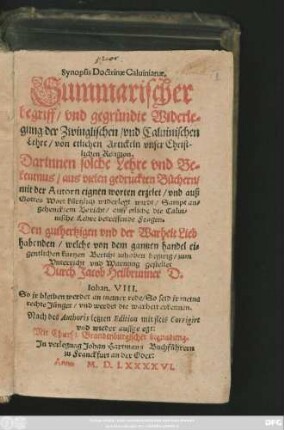 Synopsis Doctrinæ Caluinianæ,
Summarischer
begriff / vnd gegründte Widerle-
gung der Zwinglischen / vnd Caluinischen
Lehre / von etlichen Artickeln vnser Christ-
lichen Religion.
Darinnen solche Lehre vnd Be-
kentnus / aus vielen gedruckten Büchern /
mit der Autorn eignen worten erzelet / vnd auß
Gottes Wort widerlegt wirdt / Sampt an-
gehencktem Bericht / auff etliche die Calui-
nische Lehre betreffende Fragen
Den guthertzigen vnd der Warheit Lieb
habenden / welche von dem gantzen handel ei-
gentlichen kurtzen Bericht zuhaben begirig / zum
Vnterricht vnd Warnung gestellet
Durch Jacob Heilbrunner D.
Johan. VIII.
So jr bleiben werdet an meiner rede / So seid jr meine
rechte Jünger / vnd werdet die warheit erkennen.
Nach des Authoris letzten Edition mit fleis Corrigirt
vnd wieder auffge egt:
Mit Churf: Brandenburgischer begnadung.
In verlegung Johan Hartmans Buchführern
in Franckfurt an der Oder:
Anno M. D. LXXXXVI.